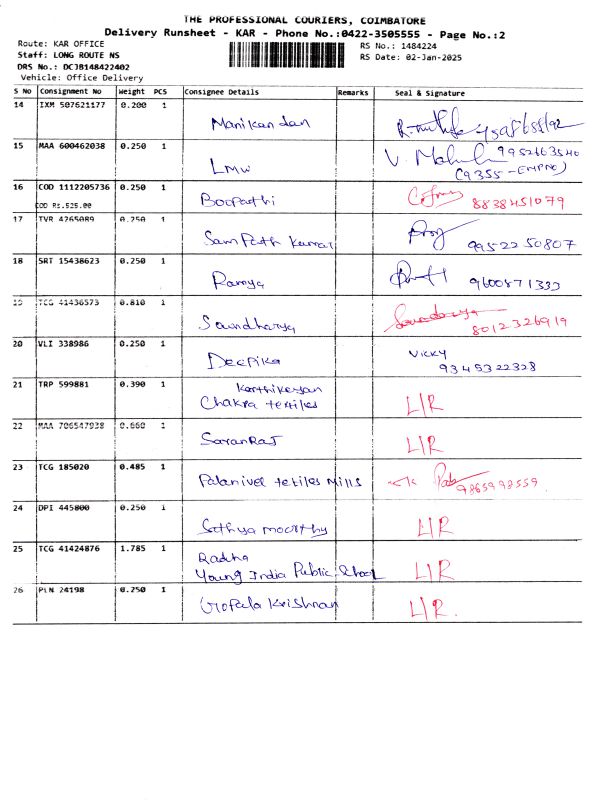 THE PROFESSIONAL COURIERS, COIMBATORE
Delivery Runsheet - KAR - Phone No.:0422-3505555 - Page No.:2
Route: KAR OFFICE
RS No.: 1484224
Staff: LONG ROUTE NS
RS Date: 02-Jan-2025
DRS No.: DCJB148422402
Vehicle: Office Delivery
S No Consignment No Weight PCS Consignee Details Remarks Seal & Signature
14 IXM 507621177 0.200 1
Manikandan
15 MAA 600462038 0.250 1
LMW V. 9952663540
(9355-EMPNO)
16 COD 1112205736 0.250 1
COD Rs.525.00 Boopathi 8838451079
17 TVR 4265089 0.250 1
Sampath Kumar 9952250807
18 SRT 15438623 0.250 1
Ramya 9600871333
19 TCG 41436573 0.810 1
Soundharya Soundarya 8012326919
20 VLI 338986 0.250 1
Deepika Vicky
9345322328
21 TRP 599881 0.390 1
Karthikeyan
Chakra textiles L/R
22 MAA 706547938 0.660 1
SaranRaj L/R
23 TCG 185020 0.485 1
Palanivel textiles Mills 9865998559
24 DPI 445800 0.250 1
Sathya moorthy L/R
25 TCG 41424876 1.785 1
Radha
Young India Public School L/R
26 PLN 24198 0.250 1
Gopala Krishnan L/R.